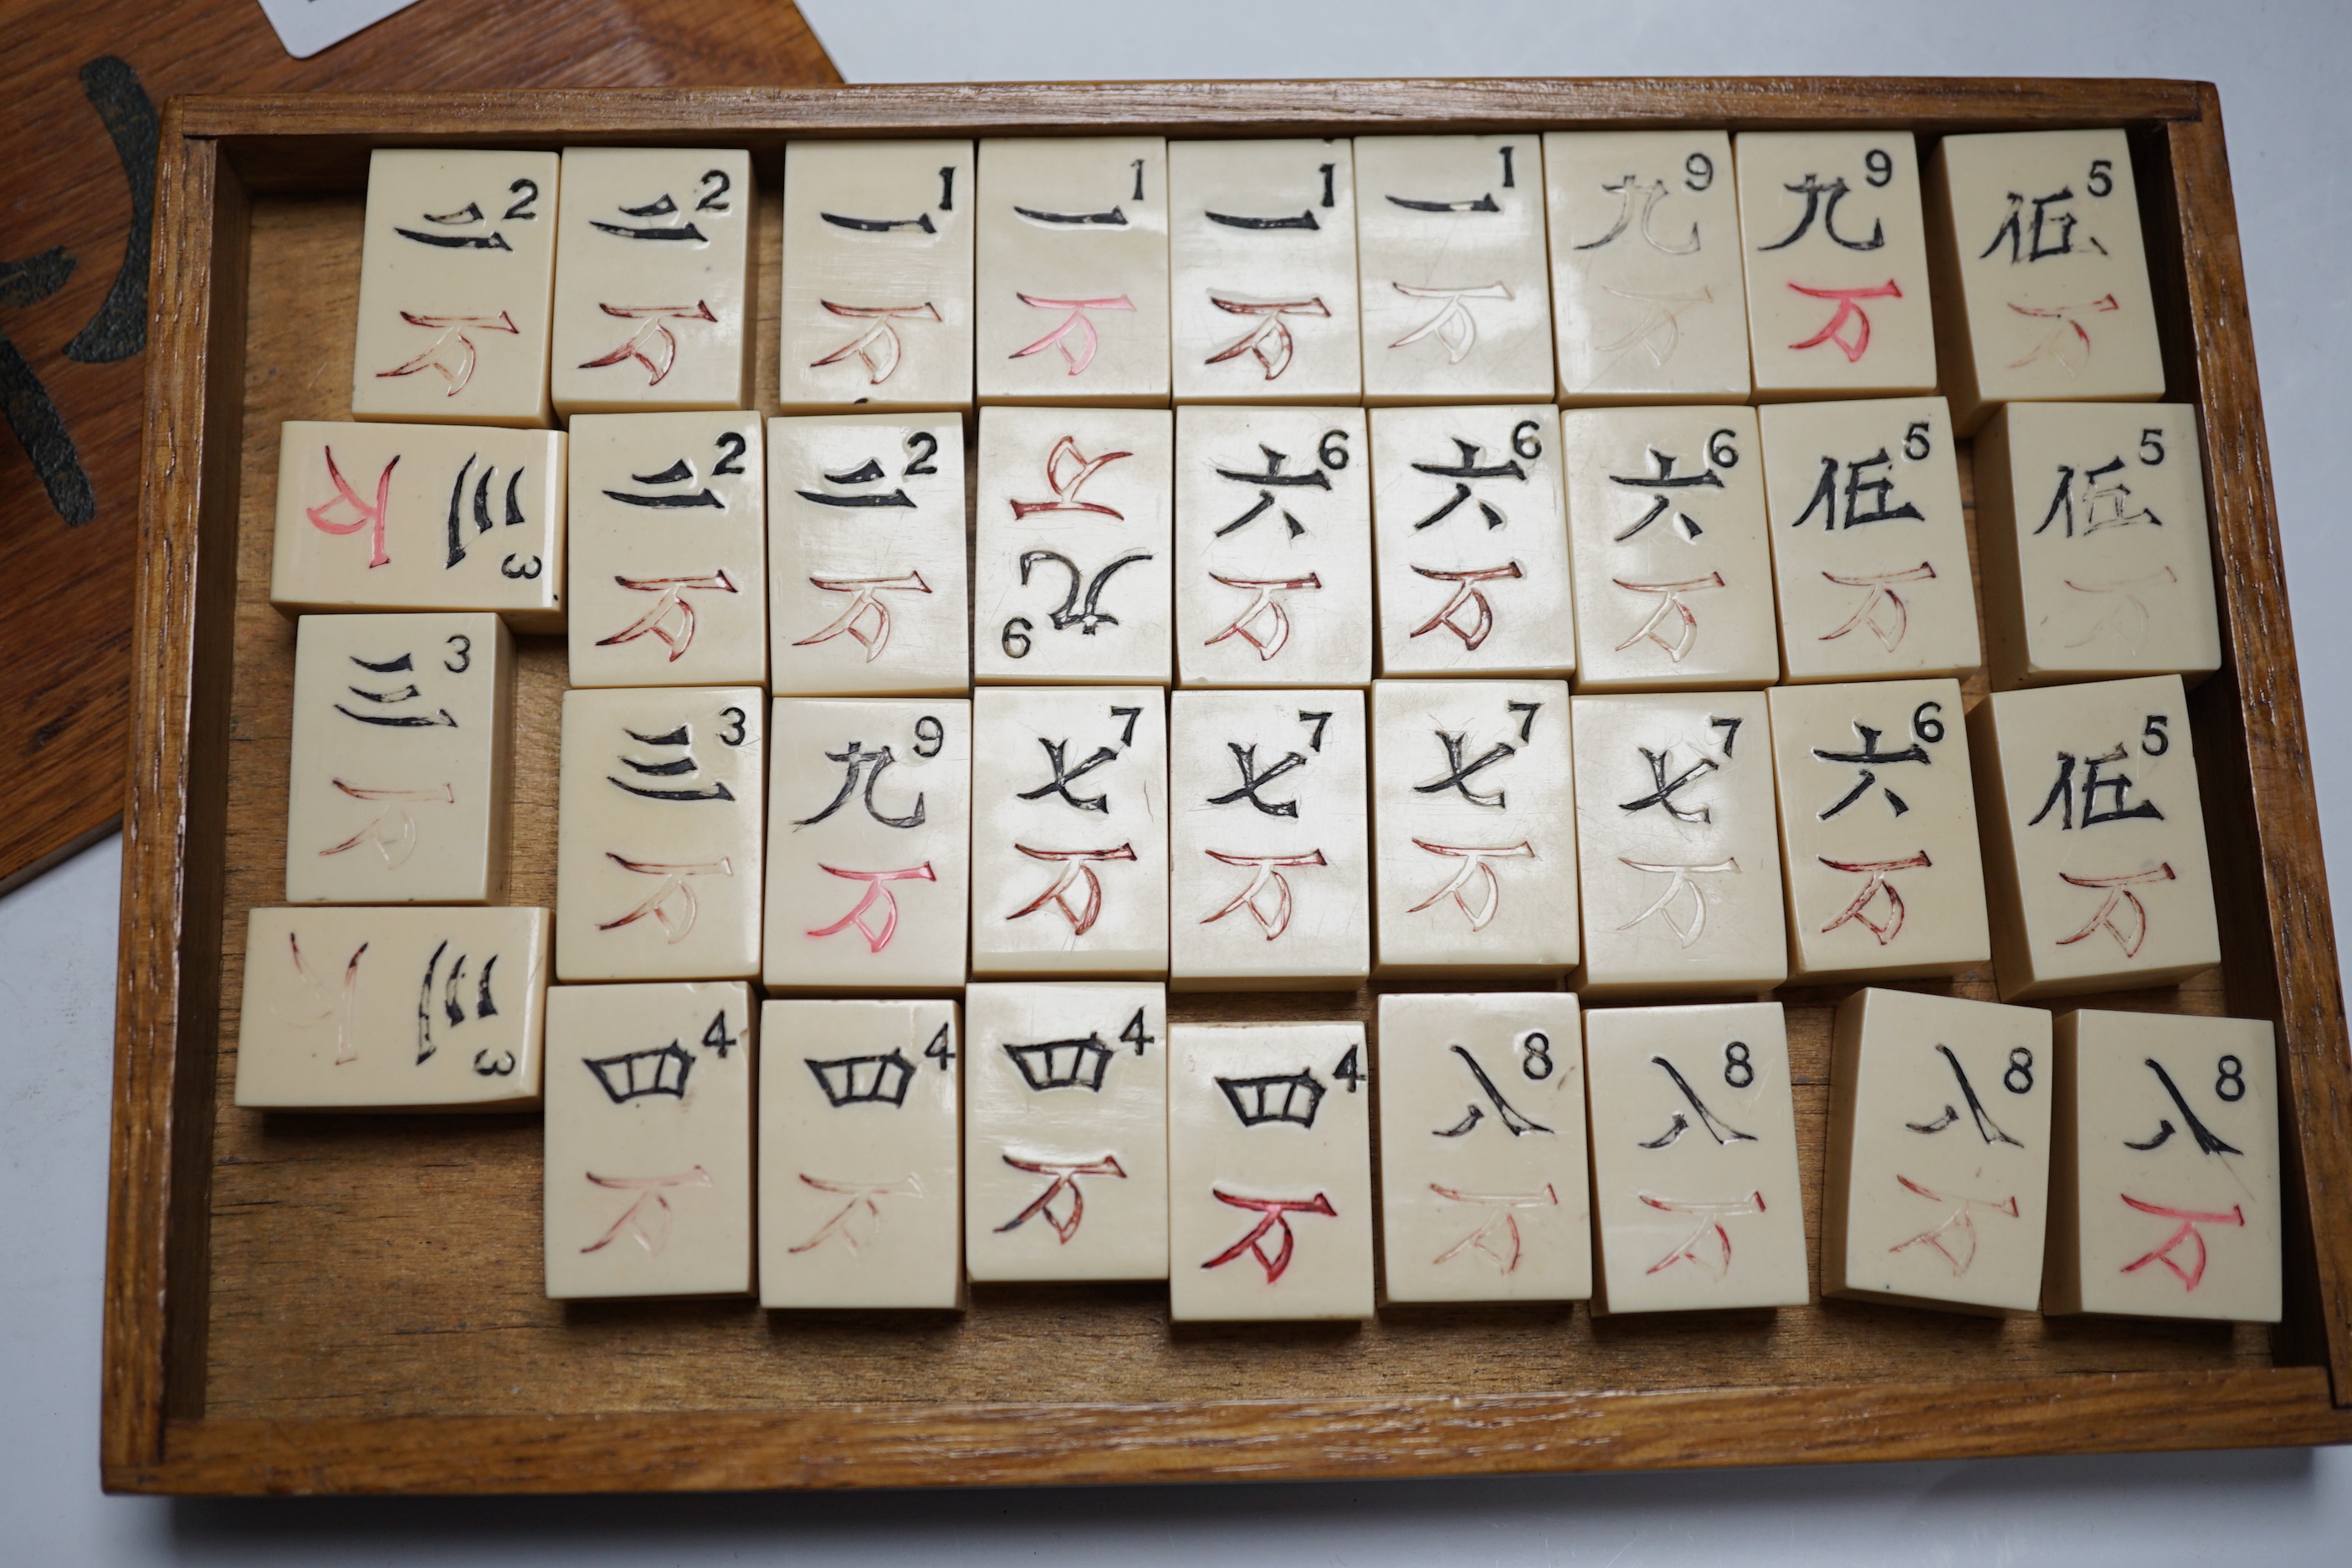 二 2
万
二 2
万
一 1
万
一 1
万
一 1
万
一 1
万
九 9
万
九 9
万
伍 5
万
三 3
万
二 2
万
二 2
万
九 9
万
六 6
万
六 6
万
六 6
万
伍 5
万
伍 5
万
三 3
万
三 3
万
九 9
万
七 7
万
七 7
万
七 7
万
七 7
万
六 6
万
伍 5
万
三 3
万
四 4
万
四 4
万
四 4
万
四 4
万
八 8
万
八 8
万
八 8
万
八 8
万